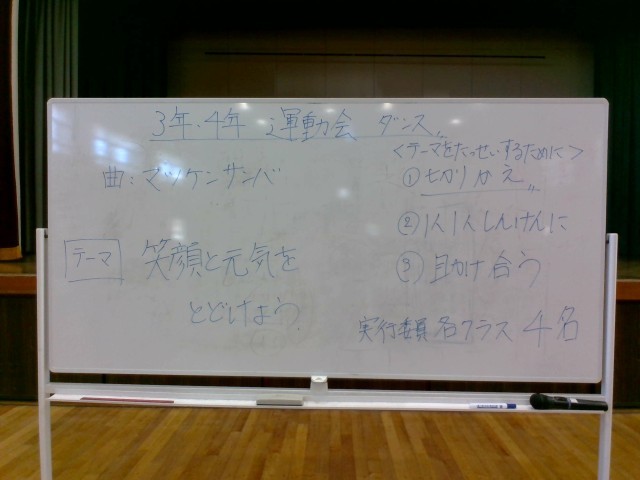 3年・4年 運動会 ダンス
曲：マツケンサンバ
テーマ 笑顔と元気を
とどけよう
＜テーマをたっせいするために＞
①きりかえ
②1人1人しんけんに
③助け合う
実行委員 各クラス 4名